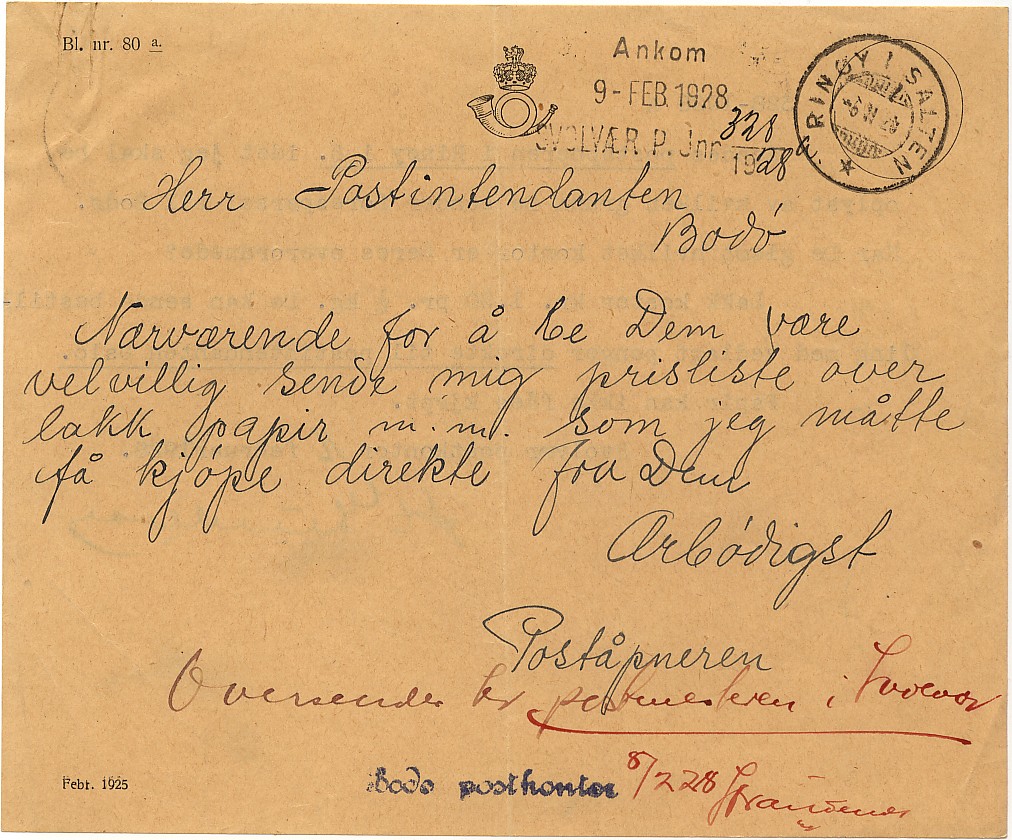 Bl. nr. 80 a.
Ankom
9-FEB. 1928
SVOLVÆR P. Jnr 328
1928
RINØY I SALTEN
Herr Postintendanten
Bodó
Nærværende for å be Dem være
velvillig sende mig prisliste over
lakk papir m.m. som jeg måtte
få kjópe direkte fra Dem
Arbódigst
Poståpneren
Oversendes hr postmesteren i Svolvær
Febr. 1925
Bodø postkontor 8/2 28